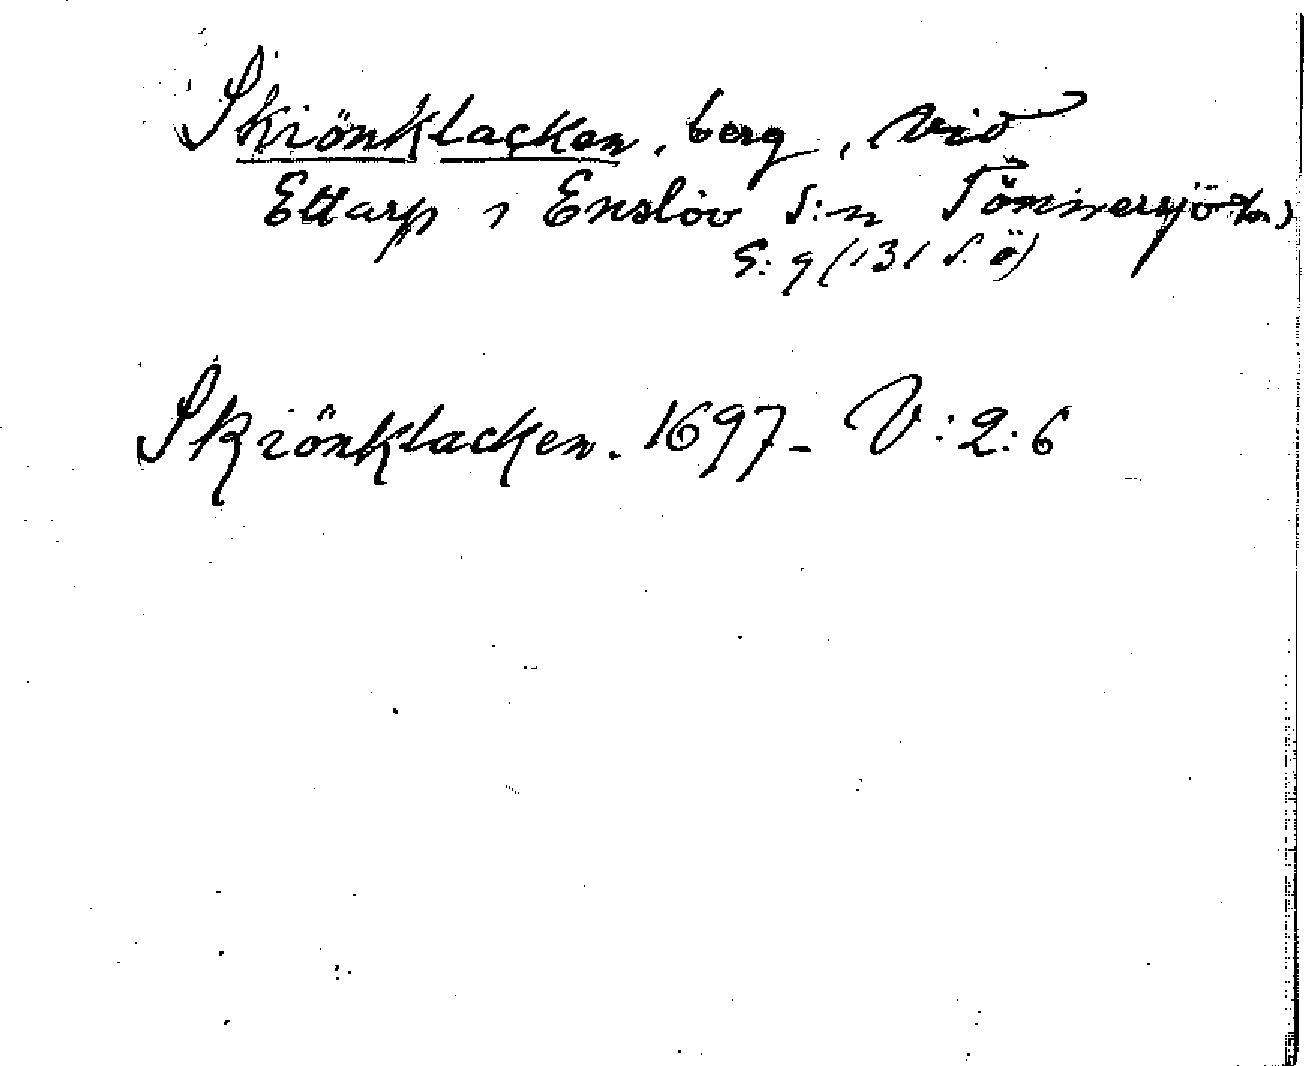 Skiönklacken, berg, vid
Ettarp i Enslöv s:n Tönnersjö hd,
S: 9 (131 S. Ö)
Skiönklacken. 1697- V:2:6